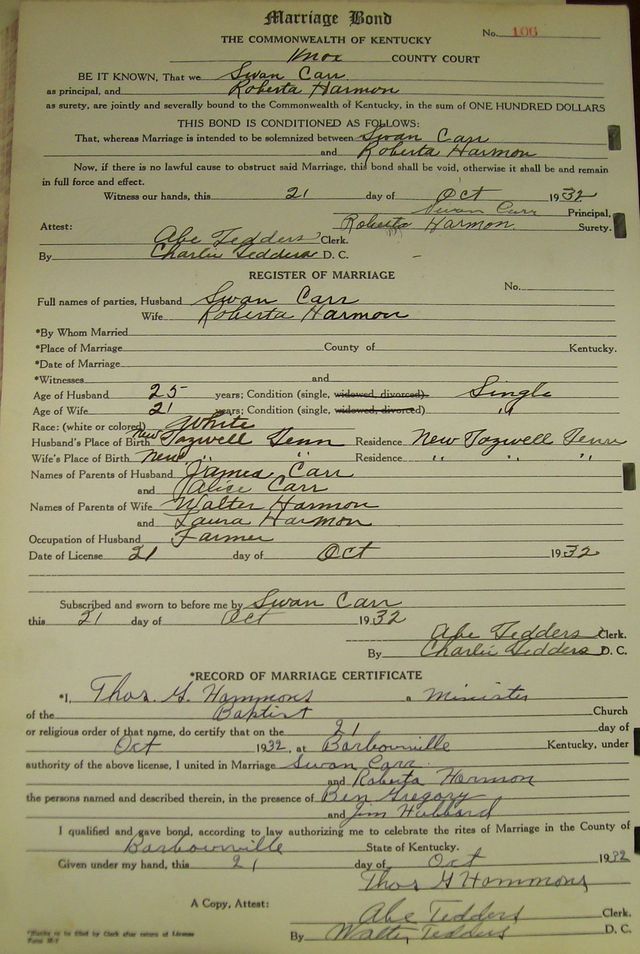 Marriage Bond
No. 106
THE COMMONWEALTH OF KENTUCKY
Knox COUNTY COURT
BE IT KNOWN, That we Swan Carr
as principal, and Roberta Harmon
as surety, are jointly and severally bound to the Commonwealth of Kentucky, in the sum of ONE HUNDRED DOLLARS
THIS BOND IS CONDITIONED AS FOLLOWS:
That, whereas Marriage is intended to be solemnized between Swan Carr
and Roberta Harmon
Now, if there is no lawful cause to obstruct said Marriage, this bond shall be void, otherwise it shall be and remain
in full force and effect.
Witness our hands, this 21 day of Oct 1932
Swan Carr Principal,
Roberta Harmon Surety.
Attest:
Abe Tedders Clerk.
By Charlie Tedders D. C.
REGISTER OF MARRIAGE
No.
Full names of parties, Husband Swan Carr
Wife Roberta Harmon
*By Whom Married
*Place of Marriage County of Kentucky.
*Date of Marriage
*Witnesses and
Age of Husband 25 years; Condition (single, widowed, divorced) Single
Age of Wife 21 years; Condition (single, widowed, divorced) "
Race: (white or colored) White
Husband's Place of Birth New Tazwell Tenn Residence New Tazwell Tenn
Wife's Place of Birth New " " Residence " " "
Names of Parents of Husband James Carr
and Alise Carr
Names of Parents of Wife Walter Harmon
and Laura Harmon
Occupation of Husband Farmer
Date of License 21 day of Oct 1932
Subscribed and sworn to before me by Swan Carr
this 21 day of Oct 1932
Abe Tedders Clerk.
By Charlie Tedders D. C.
*RECORD OF MARRIAGE CERTIFICATE
*I, Thos. G. Hammons a Minister
of the Baptist Church
or religious order of that name, do certify that on the 21 day of
Oct 1932, at Barbourville Kentucky, under
authority of the above license, I united in Marriage Swan Carr
and Roberta Harmon
the persons named and described therein, in the presence of Ben Gregory
and Jim Hubbard
I qualified and gave bond, according to law authorizing me to celebrate the rites of Marriage in the County of
Barbourville State of Kentucky.
Given under my hand, this 21 day of Oct 1932
Thos G Hammons
A Copy, Attest:
Abe Tedders Clerk.
By Walter Tedders D. C.
*Blanks to be filled by Clerk after return of License